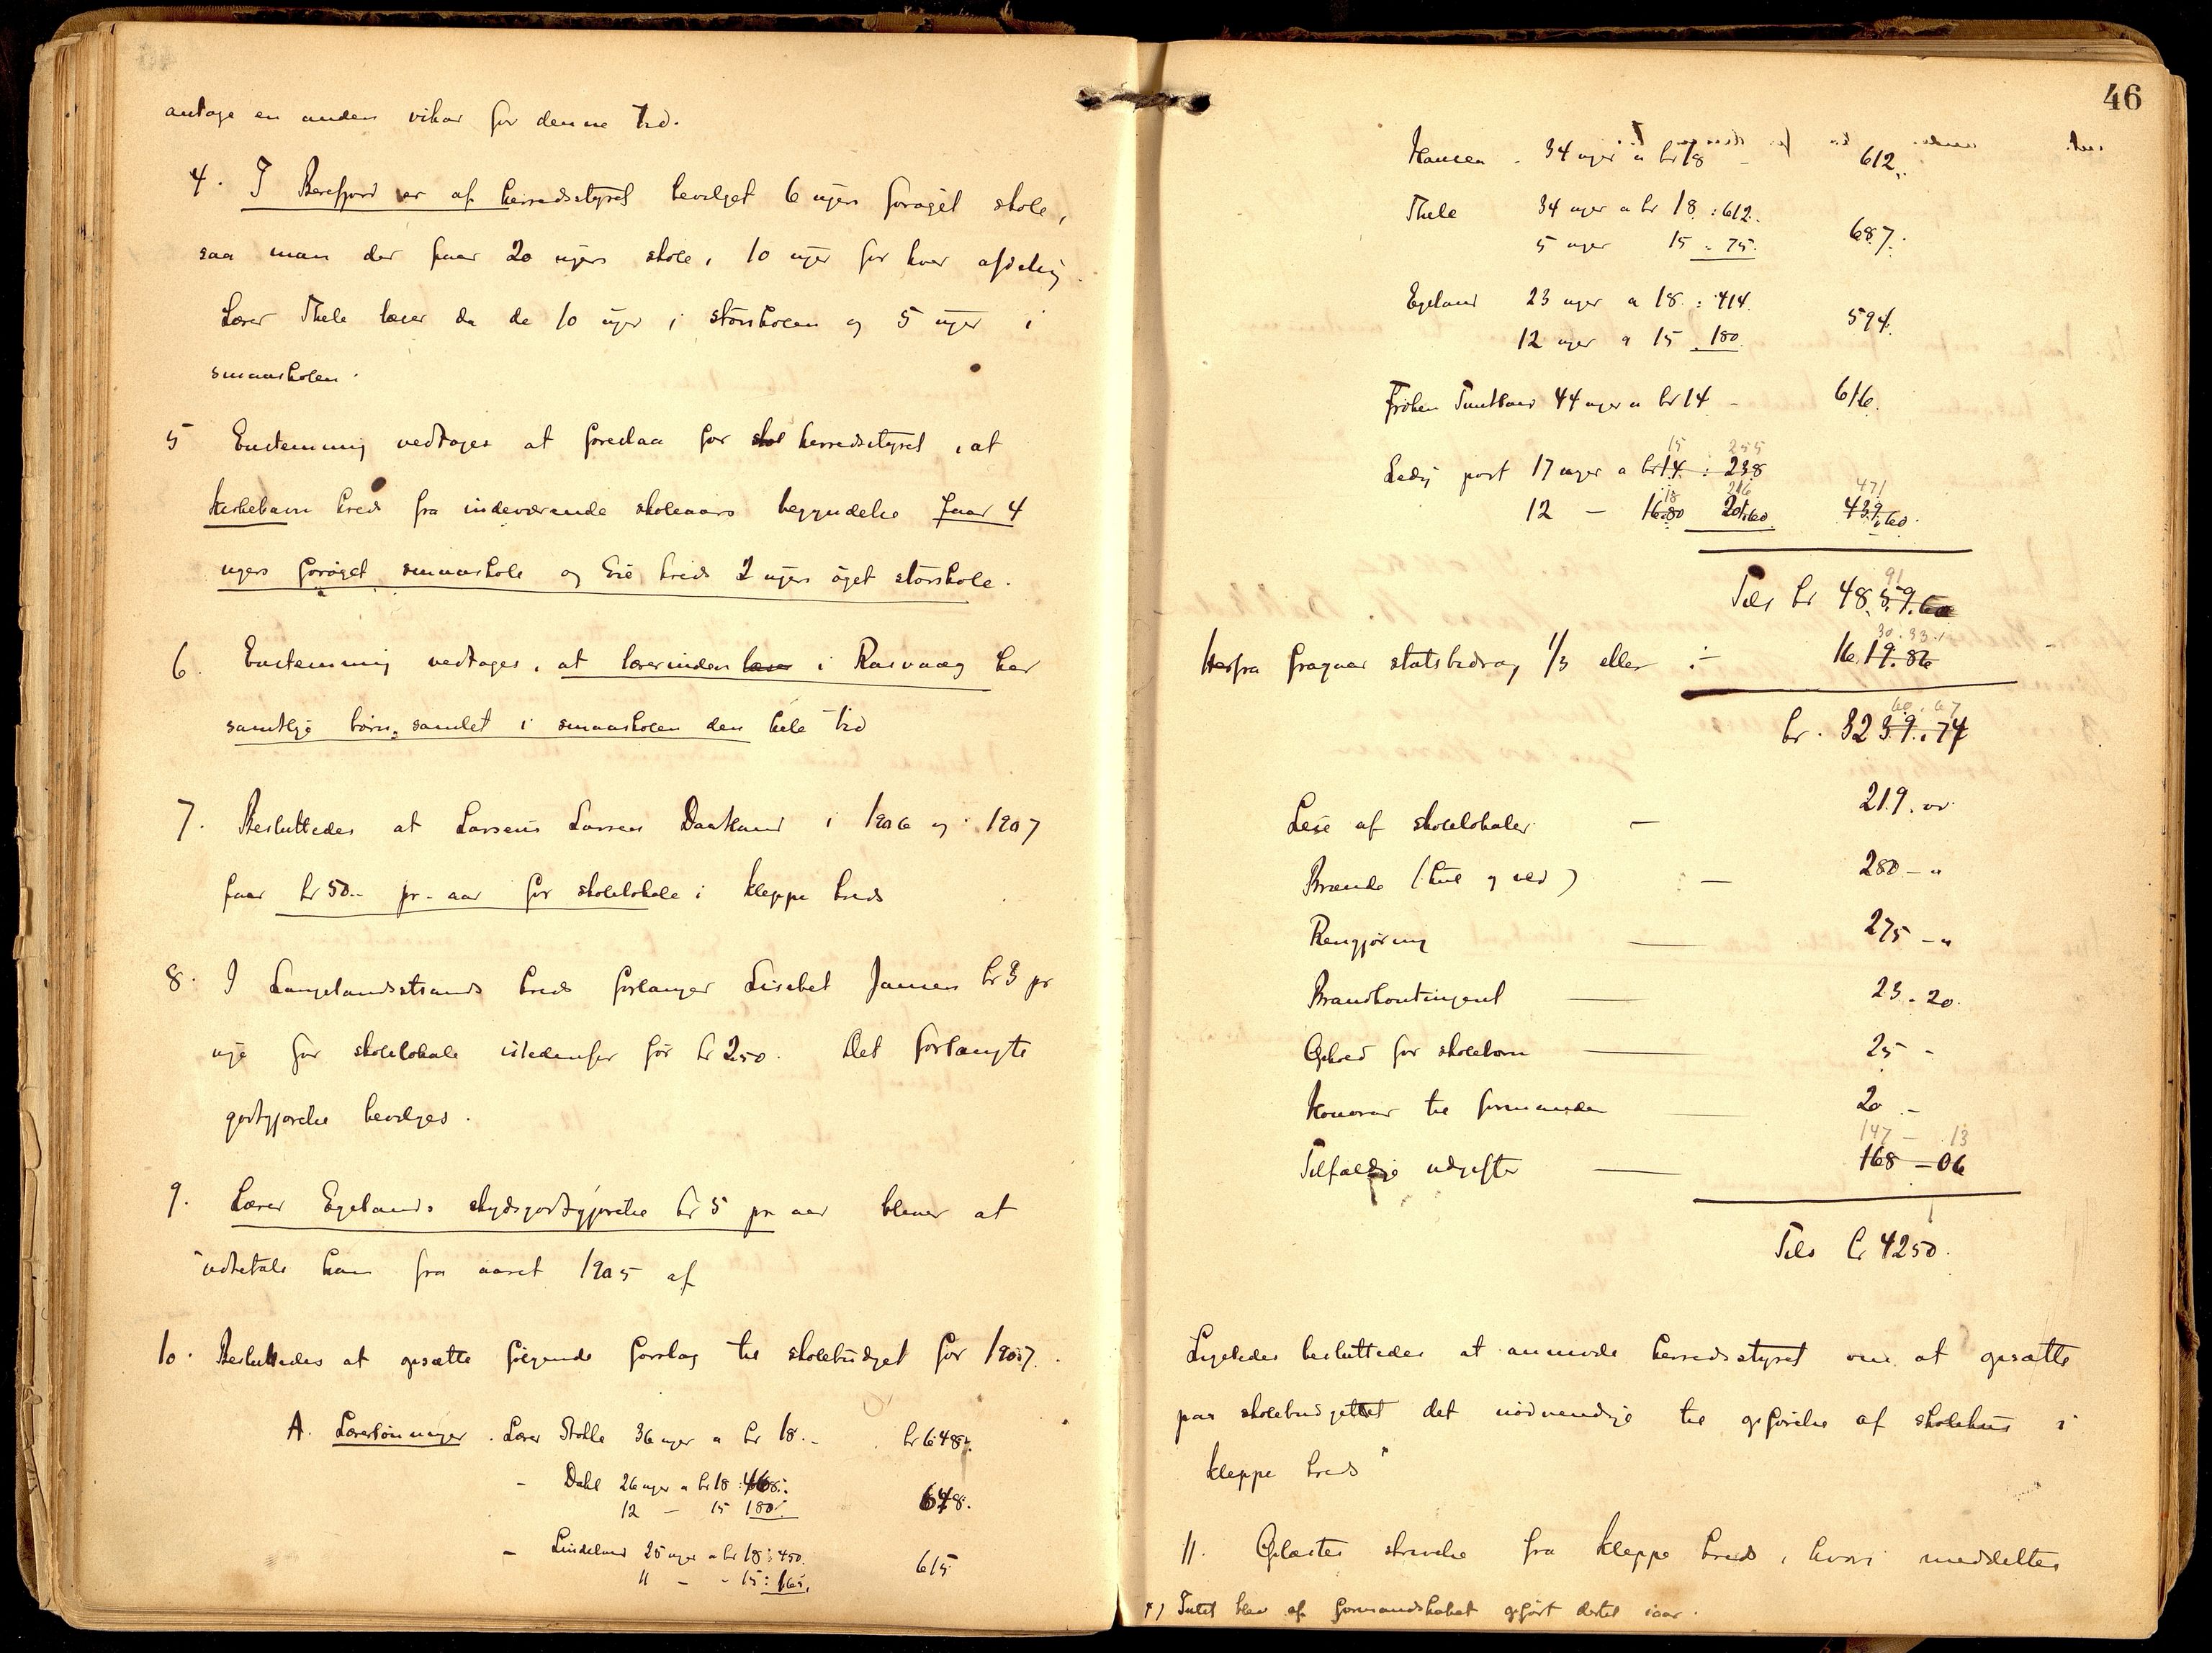 antage en anden vikar for denne tid.
4. I Berefjord er af herredsstyret bevilget 6 ugers forøget skole,
saa man der faar 20 ugers skole, 10 uger for hver afdeling.
Lærer Thele læser da de 10 uger i storskolen og 5 uger i
smaaskolen.
5 Enstemmig vedtages at foreslaa for herredsstyret, at
kirkehavn kreds fra indeværende skoleaars begyndelse faar 4
ugers forøget smaaskole og kreds 2 ugers øget storskole.
6. Enstemmig vedtages, at lærerinden læser i Rasvaag har
samtlige børn samlet i smaaskolen den hele tid
7. Besluttedes at Larsen i 1906 og 1907
faar kr 50.- pr. aar for skolelokale i Kleppe kreds
8. I Langelandsstrands kreds forlanger Lisabet Jansen kr 3 pr
uge for skolelokale istedenfor før kr 250. Det forlangte
godtgjørelse bevilges.
9. Lærer Egelands skydsgodtgjørelse kr 5 pr aar bliver at
udbetale ham fra aaret 1905 af
10. Besluttedes at opsætte følgende forslag til skolebudget for 1907.
A. Lærerlønninger. Lærer Stolle 36 uger a kr 18.- kr 648.
- Dahl 26 uger a kr 18: 468.
12 — 15 180. 648.
- Lindeland 25 uger a kr 18: 450.
11 - - 15: 165, 615
46
Hansen - 34 uger a kr 18 - 612.
Thele 34 uger a kr 18: 612.
5 uger 15 = 75. 687.
Egeland 23 uger a 18: 414.
12 uger a 15 180. 594.
Frøken Tuntland 44 uger a kr 14 - 616.
15 255
Ledig post 17 uger a kr 14: 238
18 216 471
12 — 16.80 201.60 439.60
91
Tils kr 4859.60
30.33
Herfra fragaar statsbidrag 1/3 eller ÷ 1619.86
60.67
kr. 3239.74
Leie af skolelokaler — 219.
Brænde (kul og ved) — 280 - "
Rengjøring — 275 - "
Brandkontingent — 23.20.
Ophold for skolebørn — 25 -
Honorar til formanden — 20 -
147 - 13
Tilfældige udgifter — 168 - 06
Tils kr 4250.
Ligeledes besluttedes at anmode herredsstyret om at opsætte
paa skolebudgettet det nødvendige til opførelse af skolehus i
Kleppe kreds
11. Oplæstes skrivelse fra Kleppe kreds, hvori meddeltes
*) Intet blev af formandskabet opført dertil iaar.